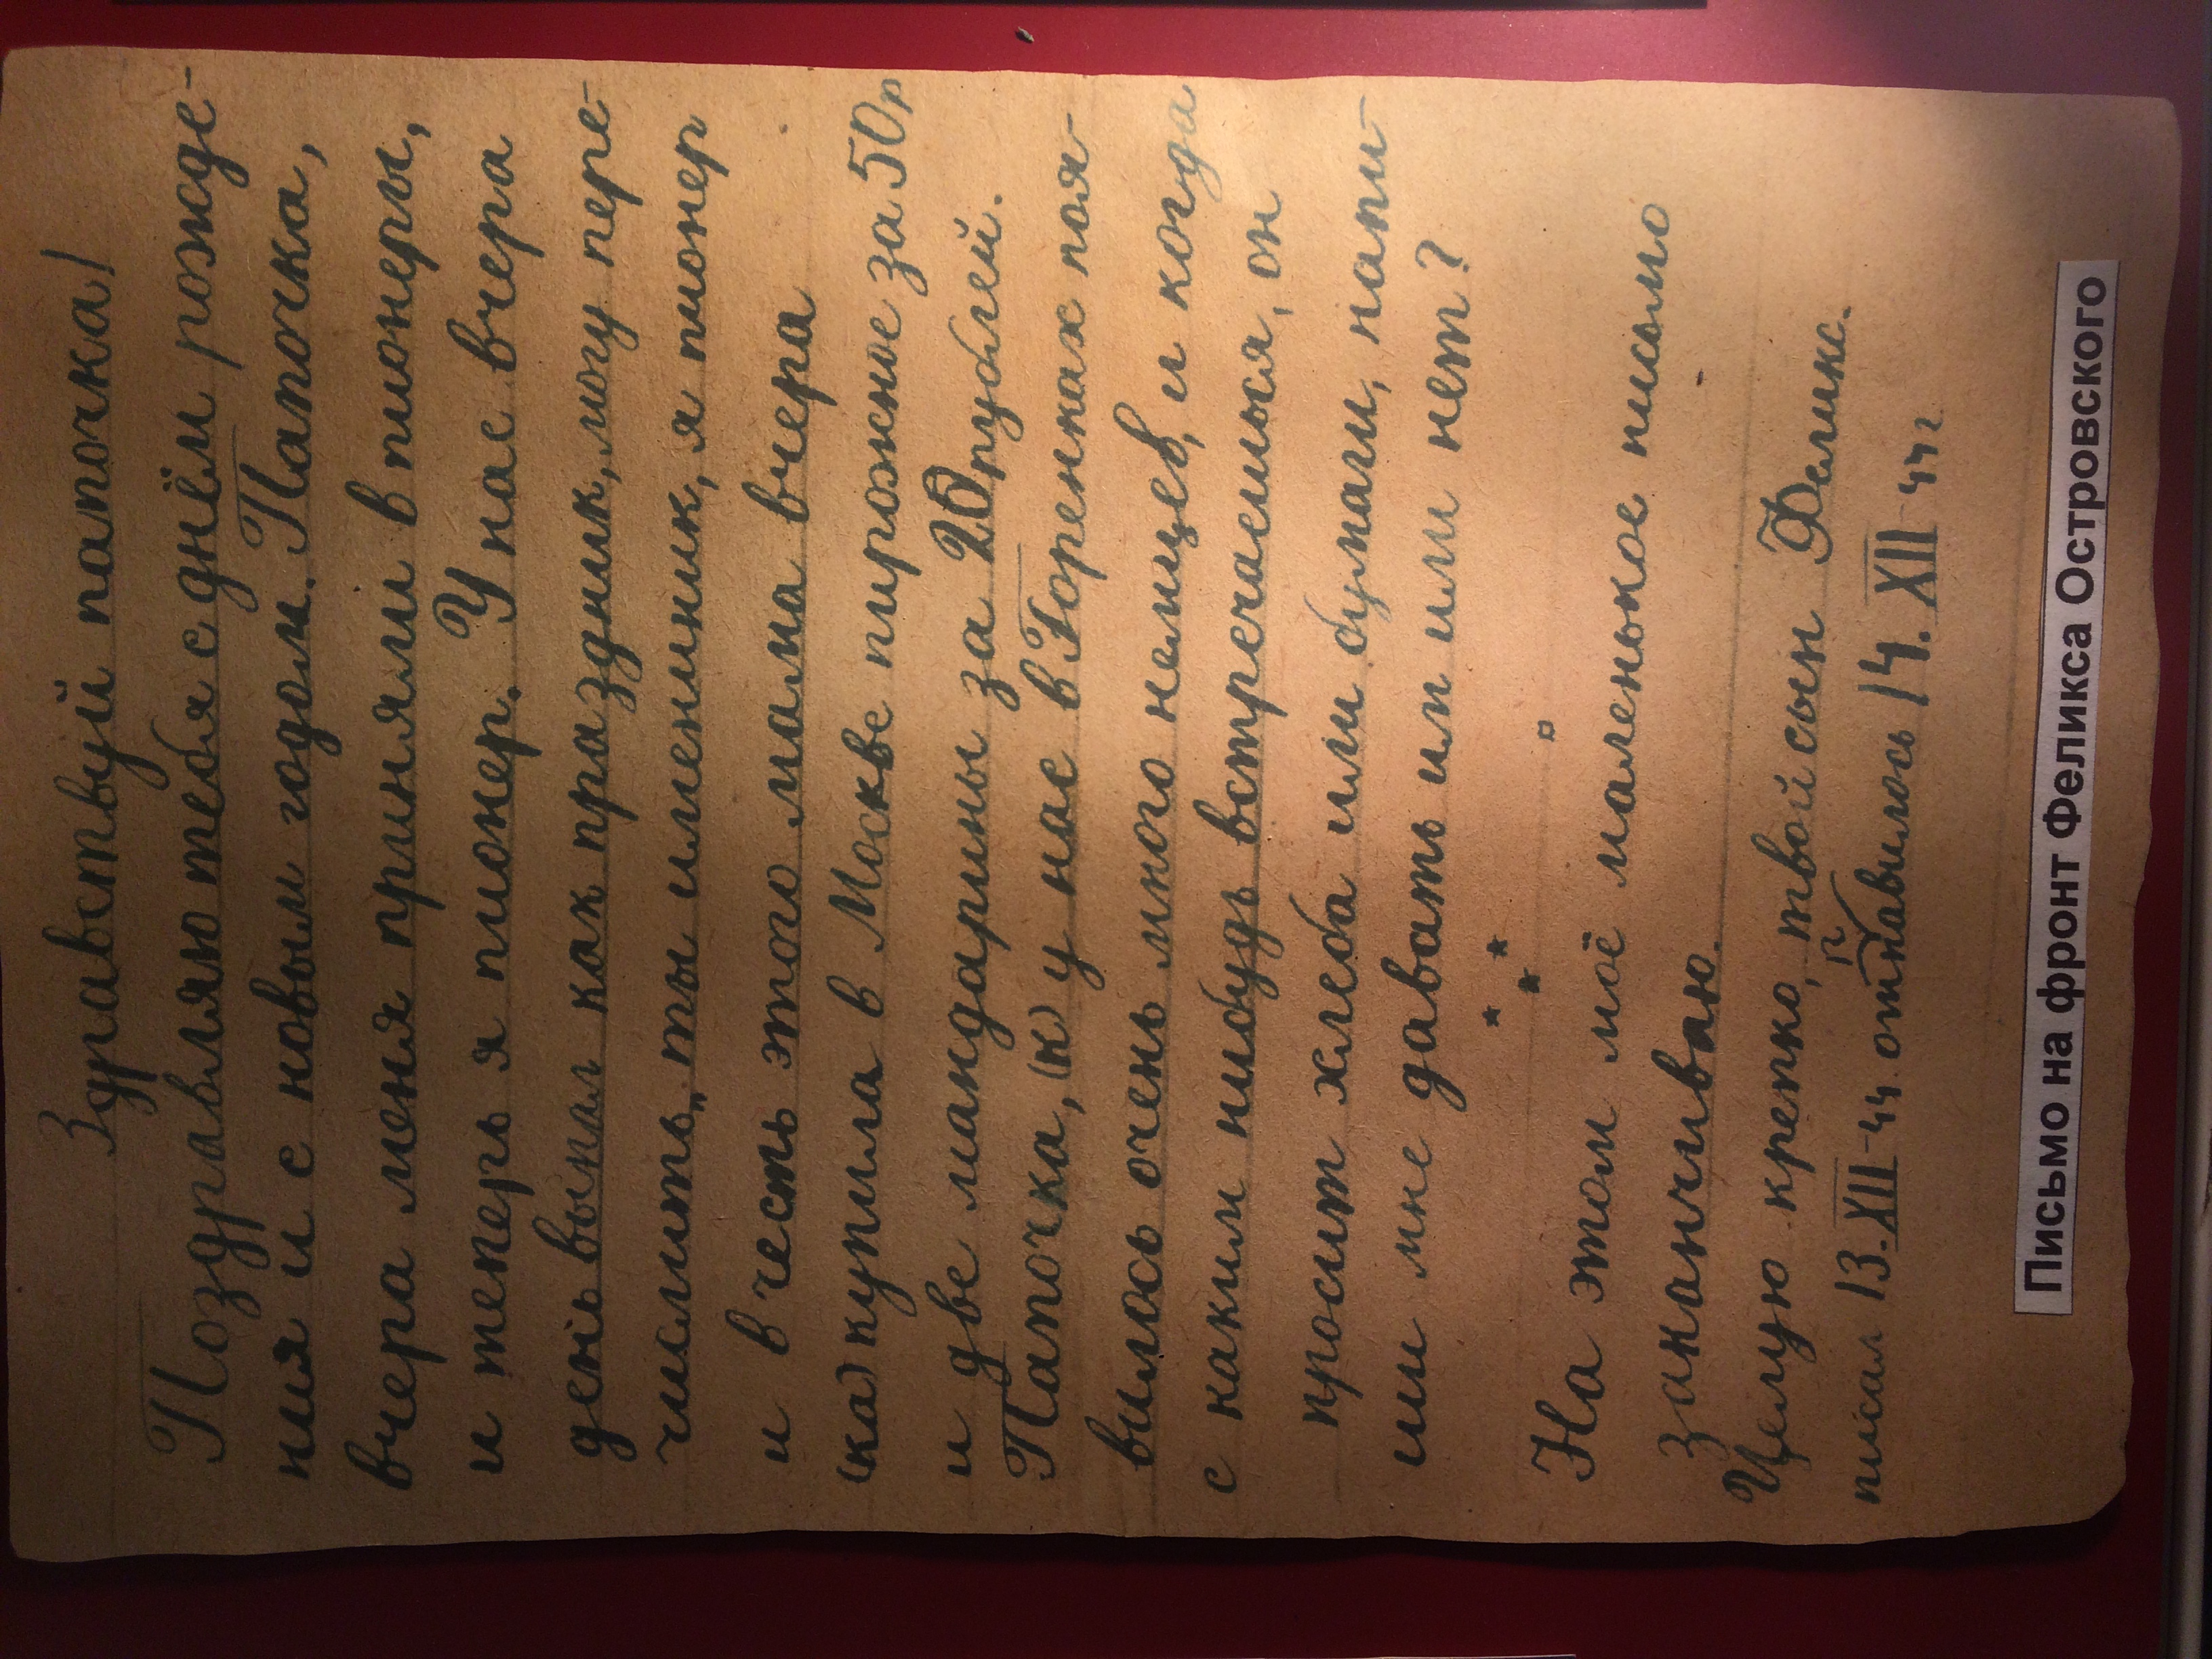 Здравствуй папочка!
Поздравляю тебя с днём рожде-
ния и с новым годом. Папочка,
вчера меня приняли в пионеры,
и теперь я пионер. У нас вчера
день выпал как праздник, могу пере-
числить „ты именинник, я пионер
и в честь этого мама вчера
(ка) купила в Москве пирожное за 50р
и две мандарины за 20 рублей.
Папочка, (к) у нас в Горенках поя-
вилось очень много немцев, и когда
с каким нибудь встречаешься, он
просит хлеба или бумаги, напи-
ши мне давать им или нет?
На этом моё маленькое письмо
заканчиваю.
Целую крепко, твой сын Феликс.
писал 13.XII-44 отправилось 14.XII-44г
Письмо на фронт Феликса Островского